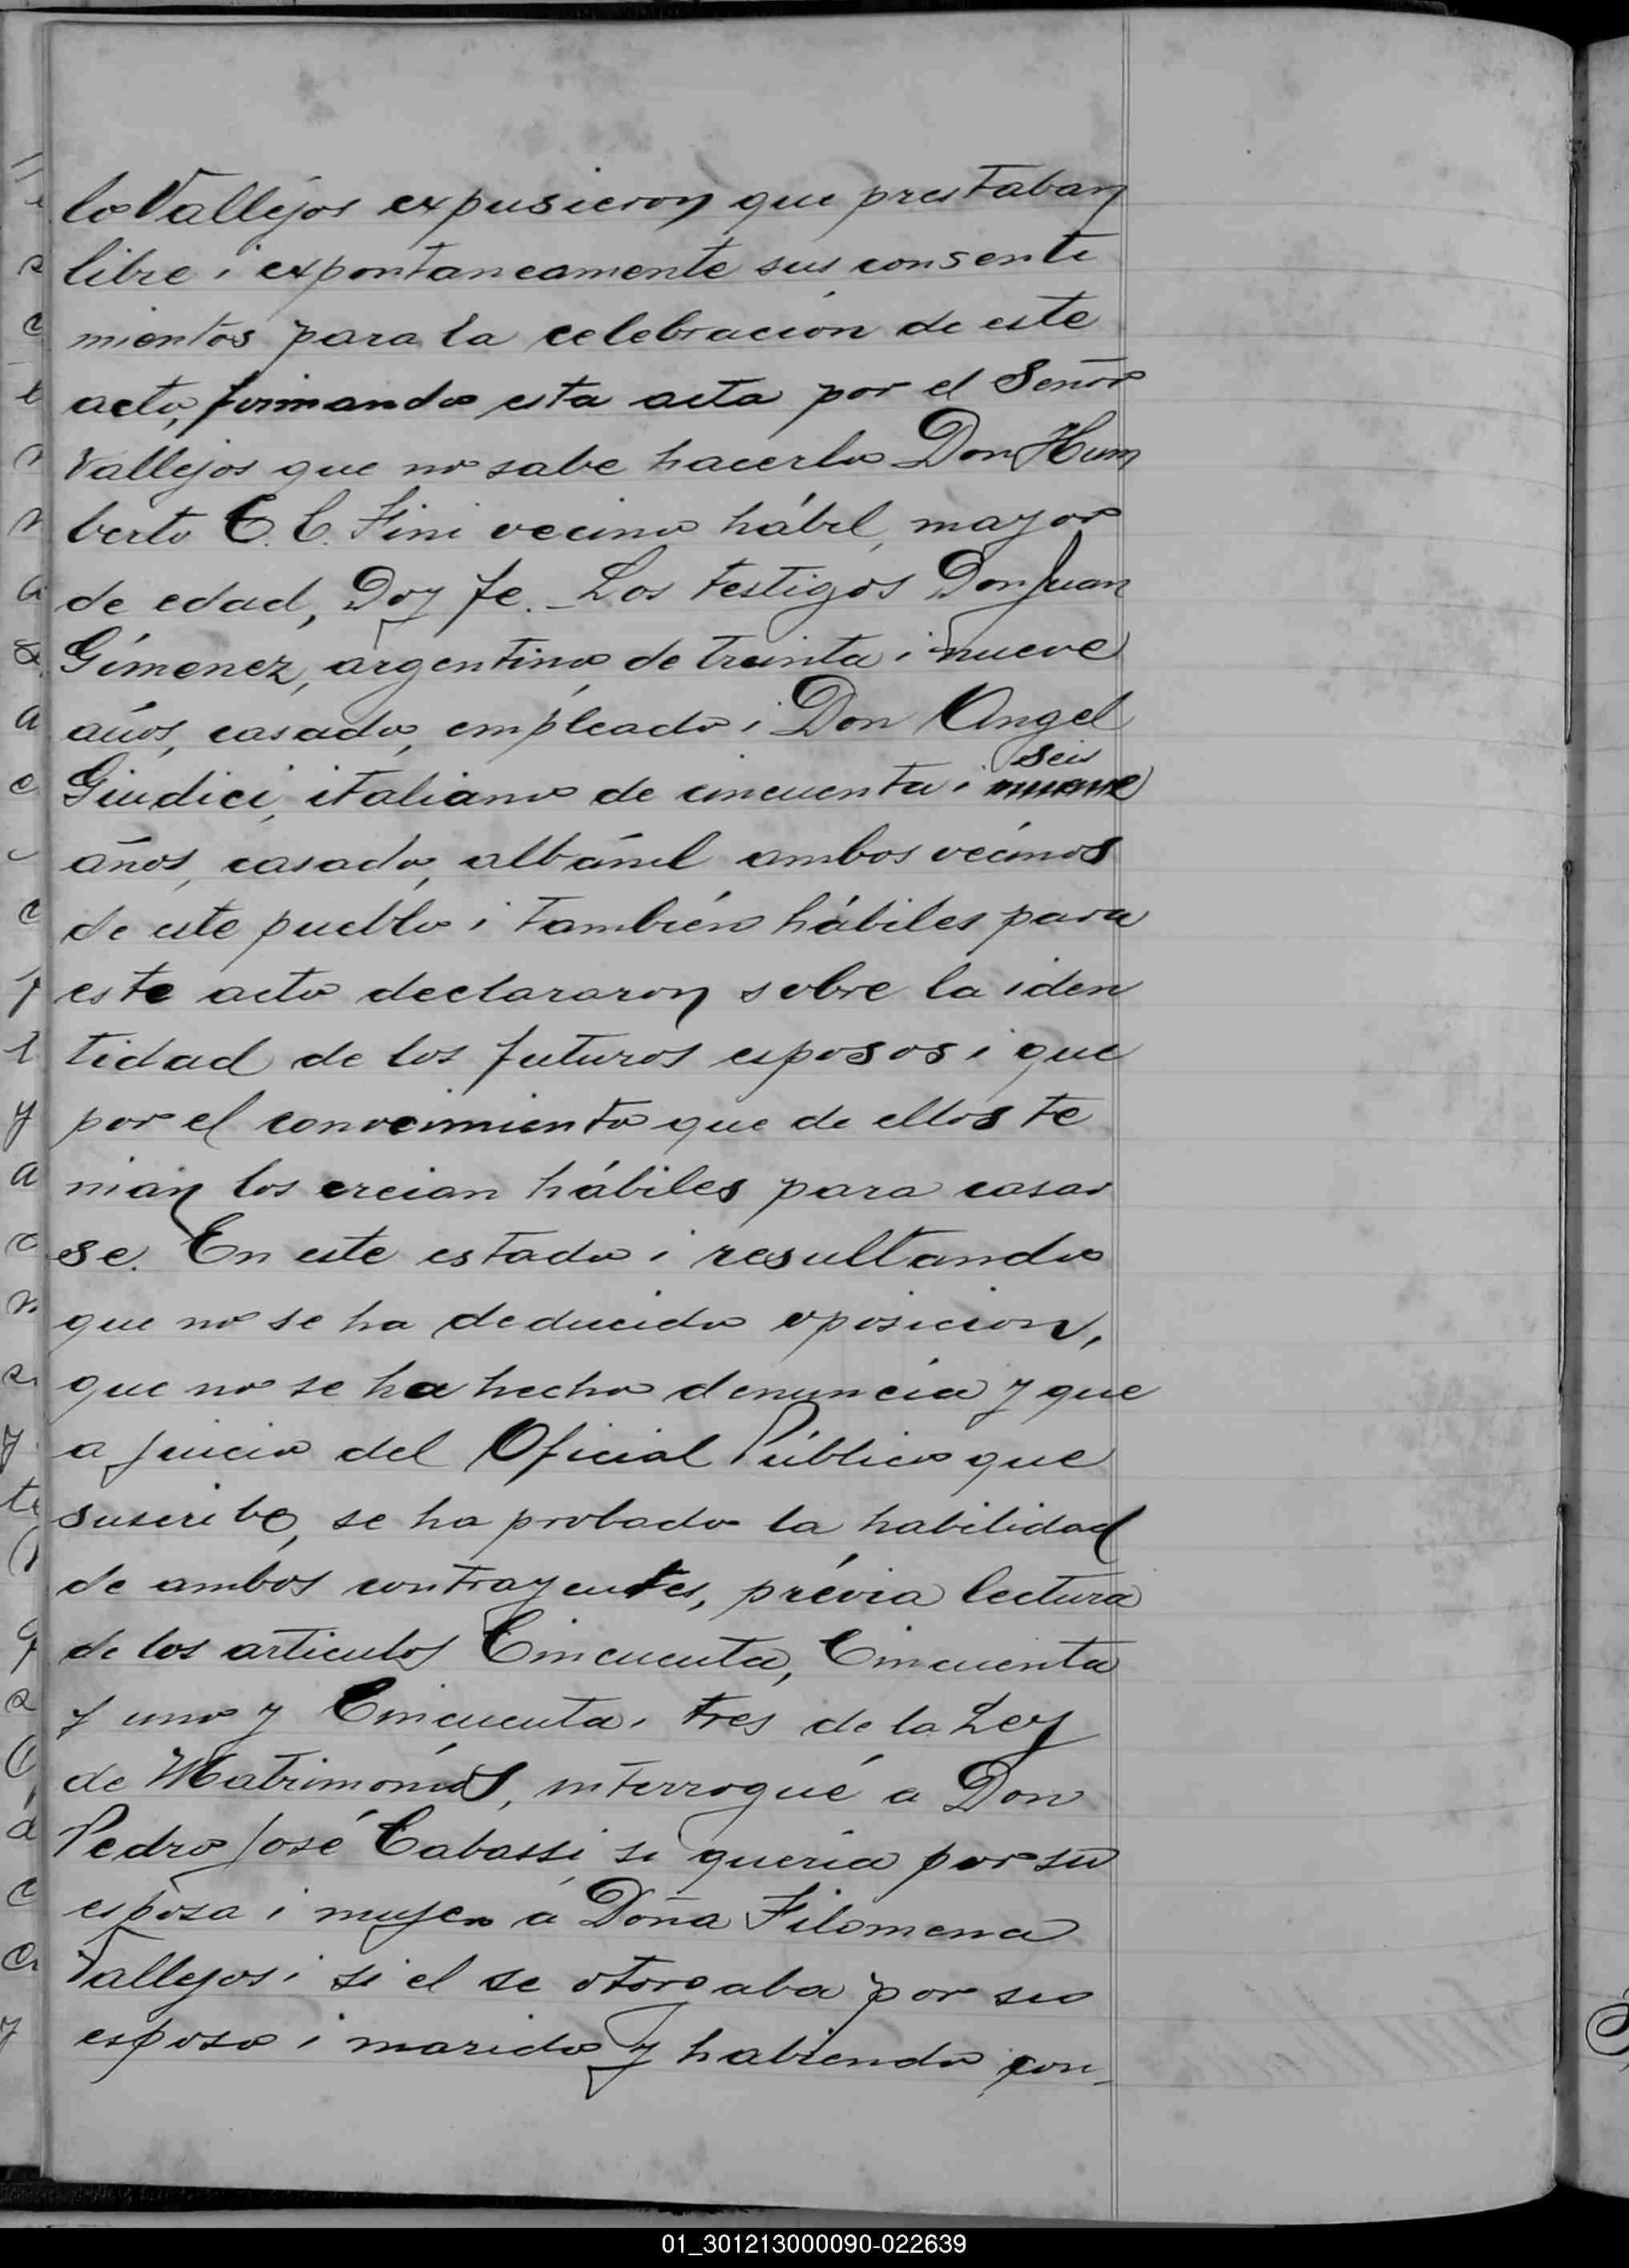 lo Vallejos expusieron que prestaban
libre i expontaneamente sus consenti
mientos para la celebración de este
acto, firmando esta acta por el Señor
Vallejos que no sabe hacerlo Don Hum
berto C. C. Fini vecino hábil, mayor
de edad, Doy fe. _ Los testigos Don Juan
Gímenez, argentino de treinta i nueve
años, casado, empleado i Don Angel
seis
Giudici, italiano de cincuenta i nueve
años, casado, albánil ambos vecinos
de este pueblo i también hábiles para
este acto declararon sobre la iden
tidad de los futuros esposos i que
por el conocimiento que de ellos te
nian los creian hábiles para casar
se. En este estado i resultando
que no se ha deducido oposicion,
que no se ha hecho denuncia y que
a juicio del Oficial Público que
suscribe, se ha probado la habilidad
de ambos contrayentes, prévia lectura
de los articulos Cincuenta, Cincuenta
y uno y Cincuenta i tres de la Ley
de Matrimonios, interrogué a Don
Pedro José Cabassi si queria por su
esposa i mujer a Doña Filomena
Vallejos i si el se otorgaba por su
esposo i marido y habiendo con-
01_301213000090-022639